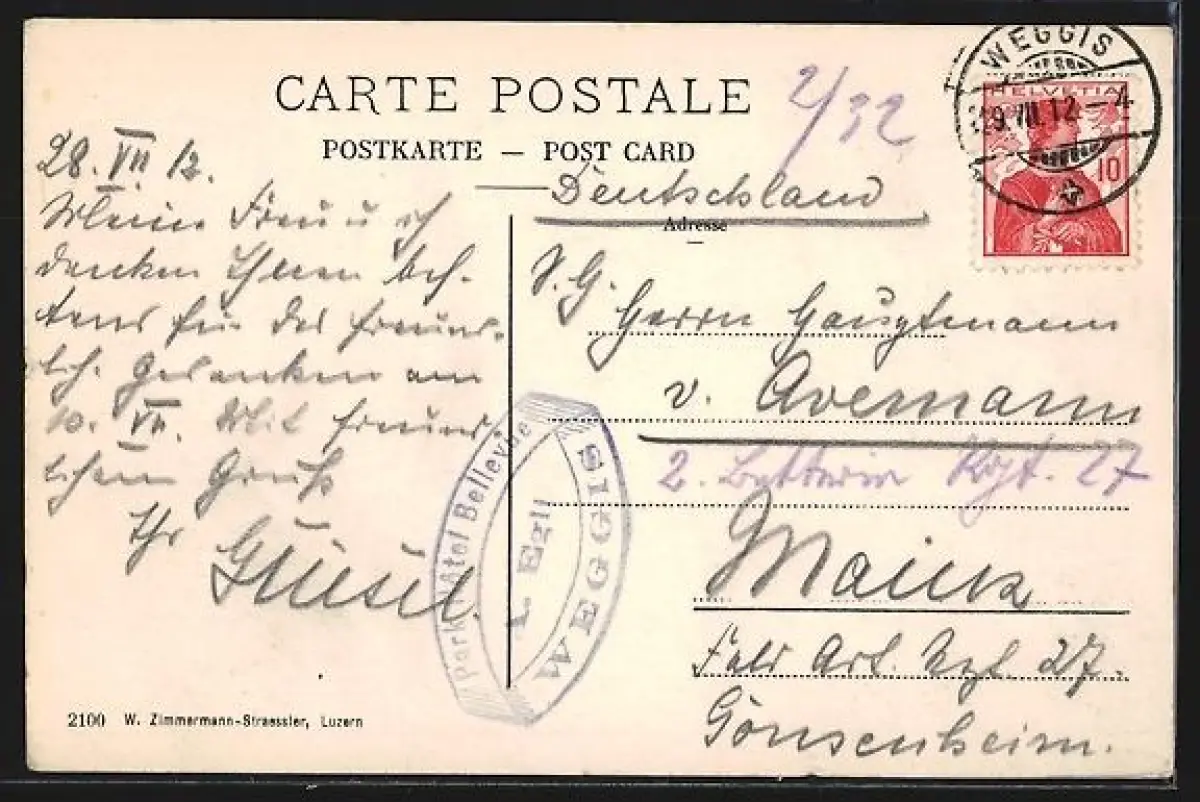 CARTE POSTALE
POSTKARTE — POST CARD
2/32
WEGGIS
29.VII.12.–4
HELVETIA
10
28. VII 12.
Meine Frau u ich
danken Ihnen bes-
tens für das freund-
lich. Gedenken am
10. VII. Mit freund
lichem Gruß
Ihr
Deutschland
Adresse
S. G.
Herrn Hauptmann
v. Avemann
2. Batterie Rgt. 27
Mainz
Feld Art. Rgt. 27.
Gonsenheim.
Park Hôtel Bellevue
L. Egli
WEGGIS
2100 W. Zimmermann-Straessler, Luzern